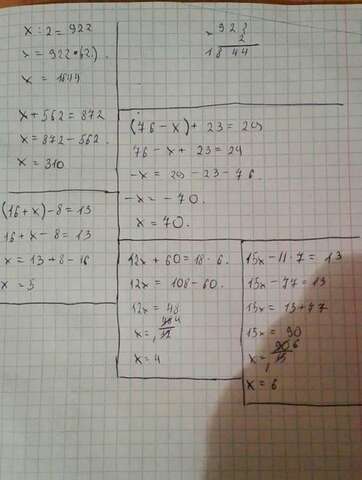 x : 2 = 922
x = 922 · 2
x = 1844
922
2
1844
x + 562 = 872
x = 872 - 562.
x = 310
(76 - x) + 23 = 29
76 - x + 23 = 29
-x = 29 - 23 - 76.
-x = -70.
x = 70.
(16 + x) - 8 = 13
16 + x - 8 = 13
x = 13 + 8 - 16
x = 5
12x + 60 = 18 · 6.
12x = 108 - 60.
12x = 48
x = 48 4
12
x = 4
15x - 11 · 7 = 13
15x - 77 = 13
15x = 13 + 77
15x = 90
x = 90 6
15
x = 6